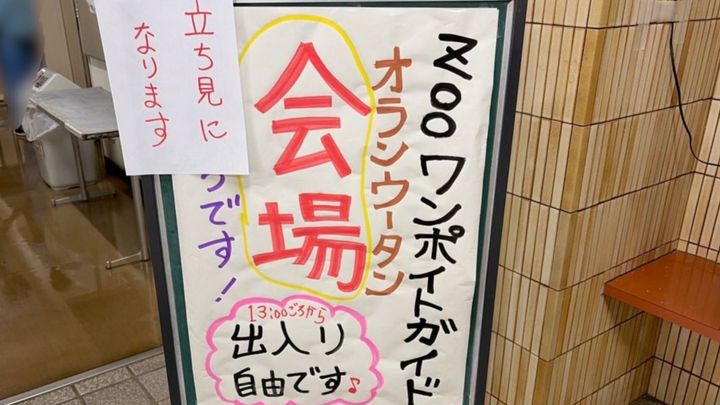 ZOO ワンポイトガイド
オランウータン
会場
です！
13:00ごろから
出入り
自由です♪
立ち見に
なります